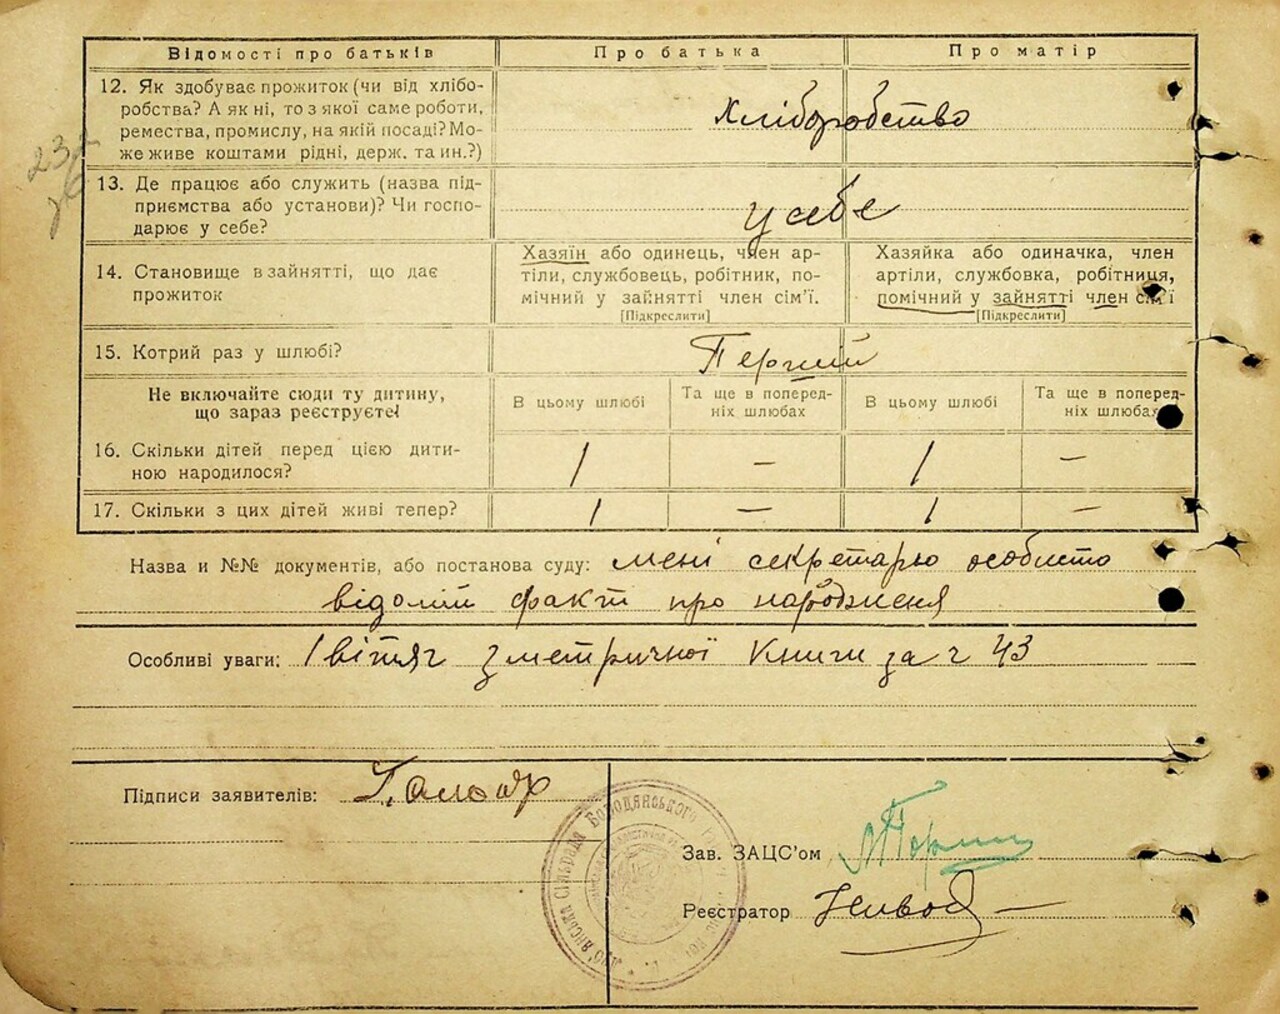 Відомості про батьків Про батька Про матір
12. Як здобуває прожиток (чи від хлібо-
робства? А як ні, то з якої саме роботи,
ремества, промислу, на якій посаді? Мо-
же живе коштами рідні, держ. та ин.?)
Хліборобство
13. Де працює або служить (назва під-
приємства або установи)? Чи госпо-
дарює у себе?
у себе
14. Становище в зайнятті, що дає
прожиток
Хазяїн або одинець, член ар-
тіли, службовець, робітник, по-
мічний у зайнятті член сім'ї.
[Підкреслити]
Хазяйка або одиначка, член
артіли, службовка, робітниця,
помічний у зайнятті член сім'ї
[Підкреслити]
15. Котрий раз у шлюбі?
Перший
Не включайте сюди ту дитину,
що зараз реєструєте!
В цьому шлюбі
Та ще в поперед-
ніх шлюбах
В цьому шлюбі
Та ще в поперед-
ніх шлюбах
16. Скільки дітей перед цією дити-
ною народилося?
1 — 1 —
17. Скільки з цих дітей живі тепер? 1 — 1 —
Назва и №№ документів, або постанова суду: мені секретарю особисто
відомий факт про народженя
Особливі уваги: вітяг з метричної Книги за ч 43
Підписи заявителів:
Зав. ЗАЦС'ом
Реєстратор
сільрада Бородянського